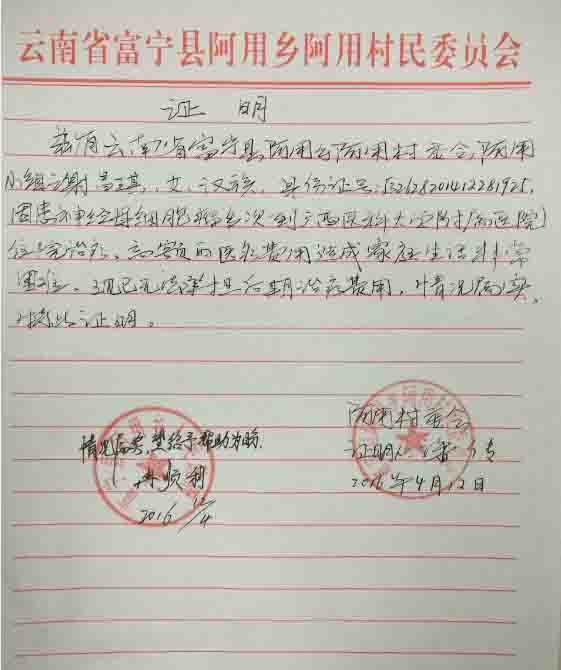 云南省富宁县阿用乡阿用村民委员会
证 明
兹有云南省富宁县阿用乡阿用村委会阿用
小组 女、汉族、身份证号:
因患神经母细胞瘤多次到广西医科大学附属医院
住院治疗、高额的医疗费用造成家庭生活非常
困难、现已无法承担后期治疗费用,情况属实,
特此证明。
情况属实,望给予帮助为盼.
顺利
2016 12/4
阿用村委会
证明人:
2016年4月12日